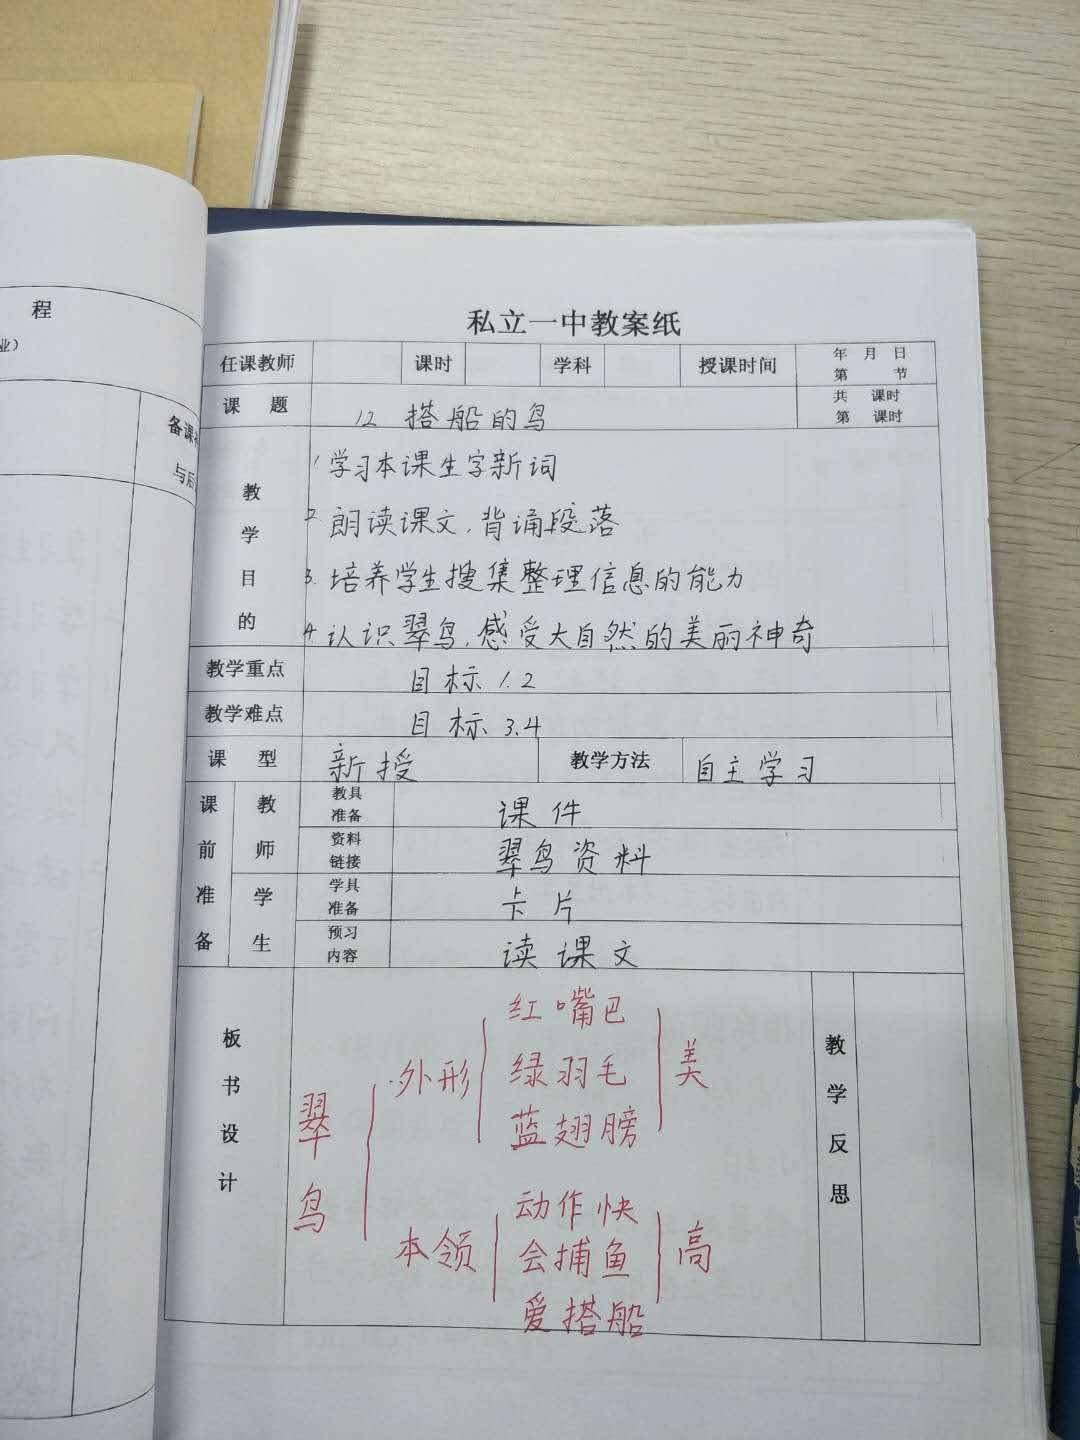 程
业）
备课
与后
私立一中教案纸
任课教师 课时 学科 授课时间 年 月 日
第 节
课 题 12 搭船的鸟 共 课时
第 课时
教学目的
1. 学习本课生字新词
2. 朗读课文，背诵段落
3. 培养学生搜集整理信息的能力
4. 认识翠鸟，感受大自然的美丽神奇
教学重点 目标1.2
教学难点 目标3.4
课 型 新授 教学方法 自主学习
课前准备
教师
教具准备 课件
资料链接 翠鸟资料
学生
学具准备 卡片
预习内容 读课文
板书设计
翠鸟
外形
红嘴巴
绿羽毛
蓝翅膀
美
本领
动作快
会捕鱼
爱搭船
高
教学反思